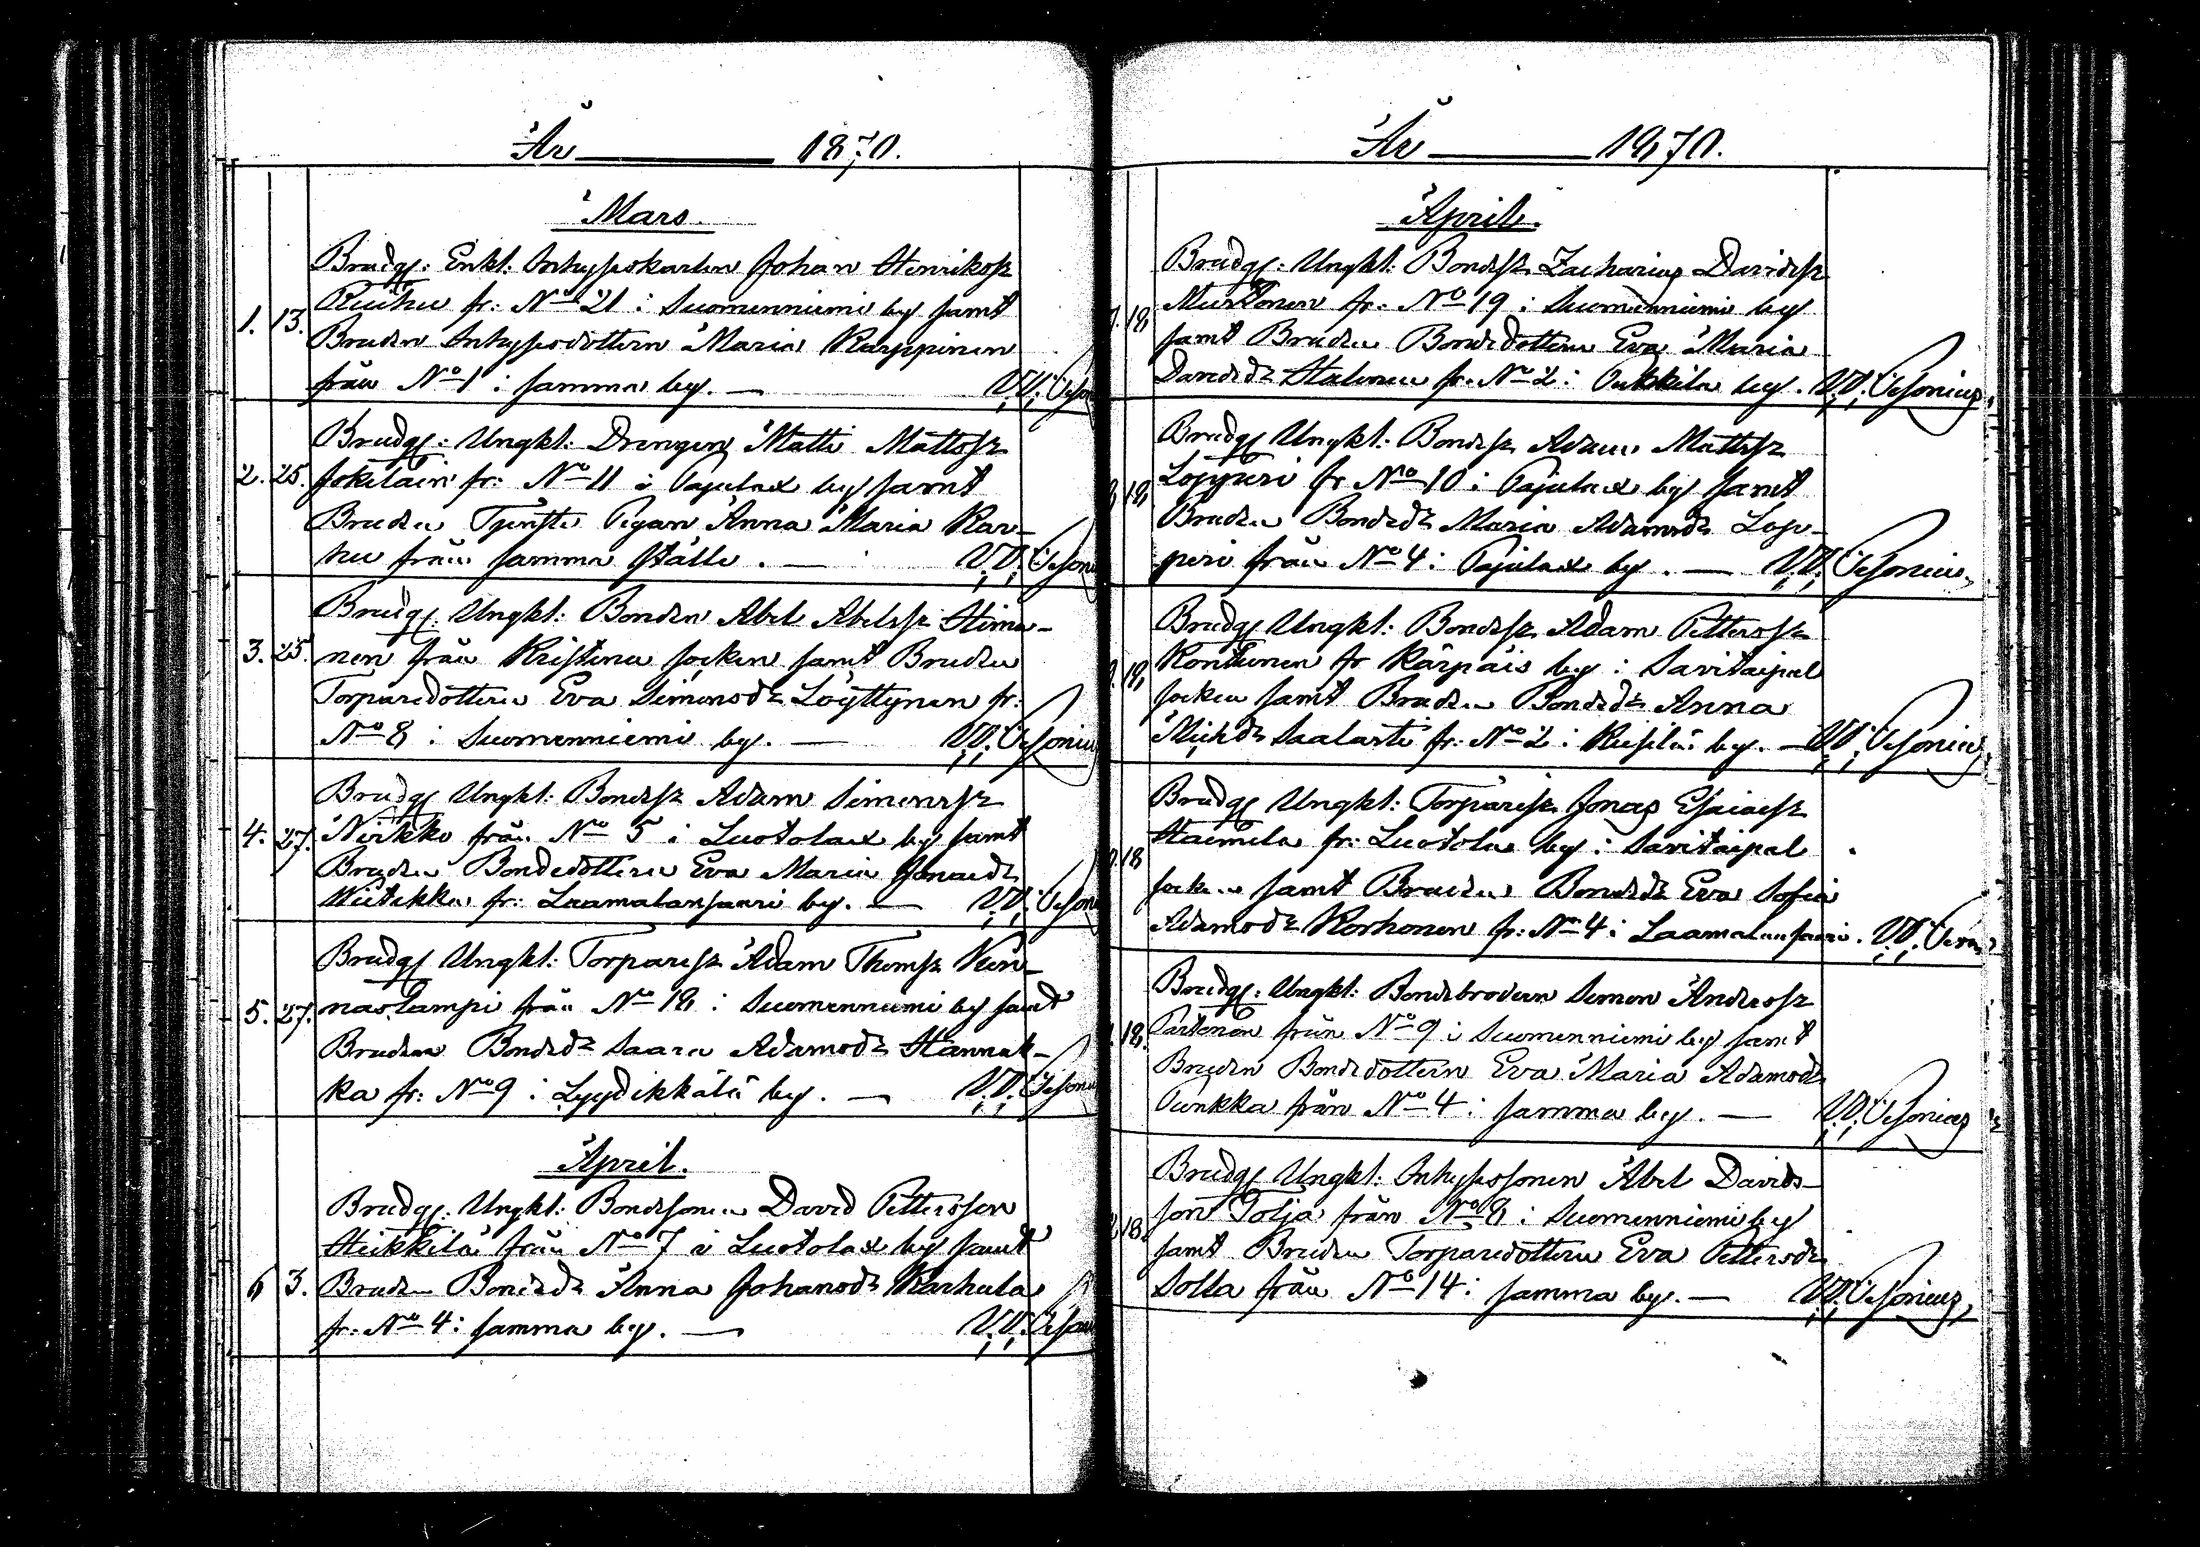 År 1870.
Mars.
Brudg: Enkl: Inhyseskarlen Johan Henrikssz
1. 13. Ruuhu fr: No 21 i Suomenniemi by samt
Bruden Inhysesdottern Maria Karppinen
från No 1 i samma by. — V.V.
Brudg: Ungkl: Drengen Matti Mattssz
2. 25. Jokilain fr: No 11 i Pajulax by samt
Bruden Tjenste Pigan Anna Maria Kar-
hu från samma ställe. — V.V.
Brudg. Ungkl: Bonden Abel Abelssz Hima-
3. 25. nen från Kristina socken samt Bruden
Torparedottern Eva Simonsdr Löyttynen fr:
No 8 i Suomenniemi by. — V.V.
Brudg Ungkl: Bondesz Adam Simonssz
4. 27. Nirkko från No 5 i Luotolax by samt
Bruden Bondedottern Eva Maria Jonaedr
Wiitikka fr: Laamalansaari by. — V.V.
Brudg Ungkl: Torparesz Adam Thomsz Kun-
5. 27. naslampi från No 18 i Suomenniemi by samt
Bruden Bondedr Saara Adamsdr Hannuk-
ka fr: No 9 i Lyydikkälä by. — V.V.
April.
Brudg. Ungkl: Bondesonen David Pettersson
Heikkilä från No 7 i Luotolax by samt
6 3. Bruden Bondedr Anna Johansdr Karhula
fr: No 4 i samma by. — V.V.
År 1870.
April.
Brudg: Ungkl: Bondesz Zacharias Davidssz
18 Murtonen fr: No 19 i Suomenniemi by
samt Bruden Bondedottern Eva Maria
Davidsdr Halonen fr: No 2 i Oukkila by. V.V.
Brudg Ungkl: Bondesz Adam Mattssz
18 Löppöri fr No 10 i Pajulax by samt
Bruden Bondedr Maria Adamsdr Lop-
peri från No 4 i Pajulax by. — V.V.
Brudg Ungkl: Bondesz Adam Petterssz
18 Kontunen fr Kärpäis by i Savitaipal
socken samt Bruden Bondedr Anna
Michdr Saalasti fr: No 2 i Kiesilä by. — V.V.
Brudg Ungkl: Torparesz Jonas Esaiaesz
18 Haimila fr: Luotola by i Savitaipal
socken samt Bruden Bondedr Eva Sofia
Adamsdr Korhonen fr: No 4 i Laamalansaari. V.V.
Brudg: Ungkl: Bondebrodern Simon Anderssz
18. Partanen från No 9 i Suomenniemi by samt
Bruden Bondedottern Eva Maria Adamsdr
Punkka från No 4 i samma by. — V.V.
Brudg Ungkl: Inhysessonen Abel Davids-
18. son Tolja från No 8 i Suomenniemi by
samt Bruden Torparedottern Eva Pettersdr
Solla från No 14 i samma by. — V.V.